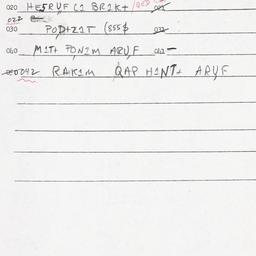 020 HESRUF C1 BR1K+
022
030 POD+Z1T (555$ 032
040 M1T+ PON1M ARUF 042
042 RAK1M QAP H1NT+ ARUF